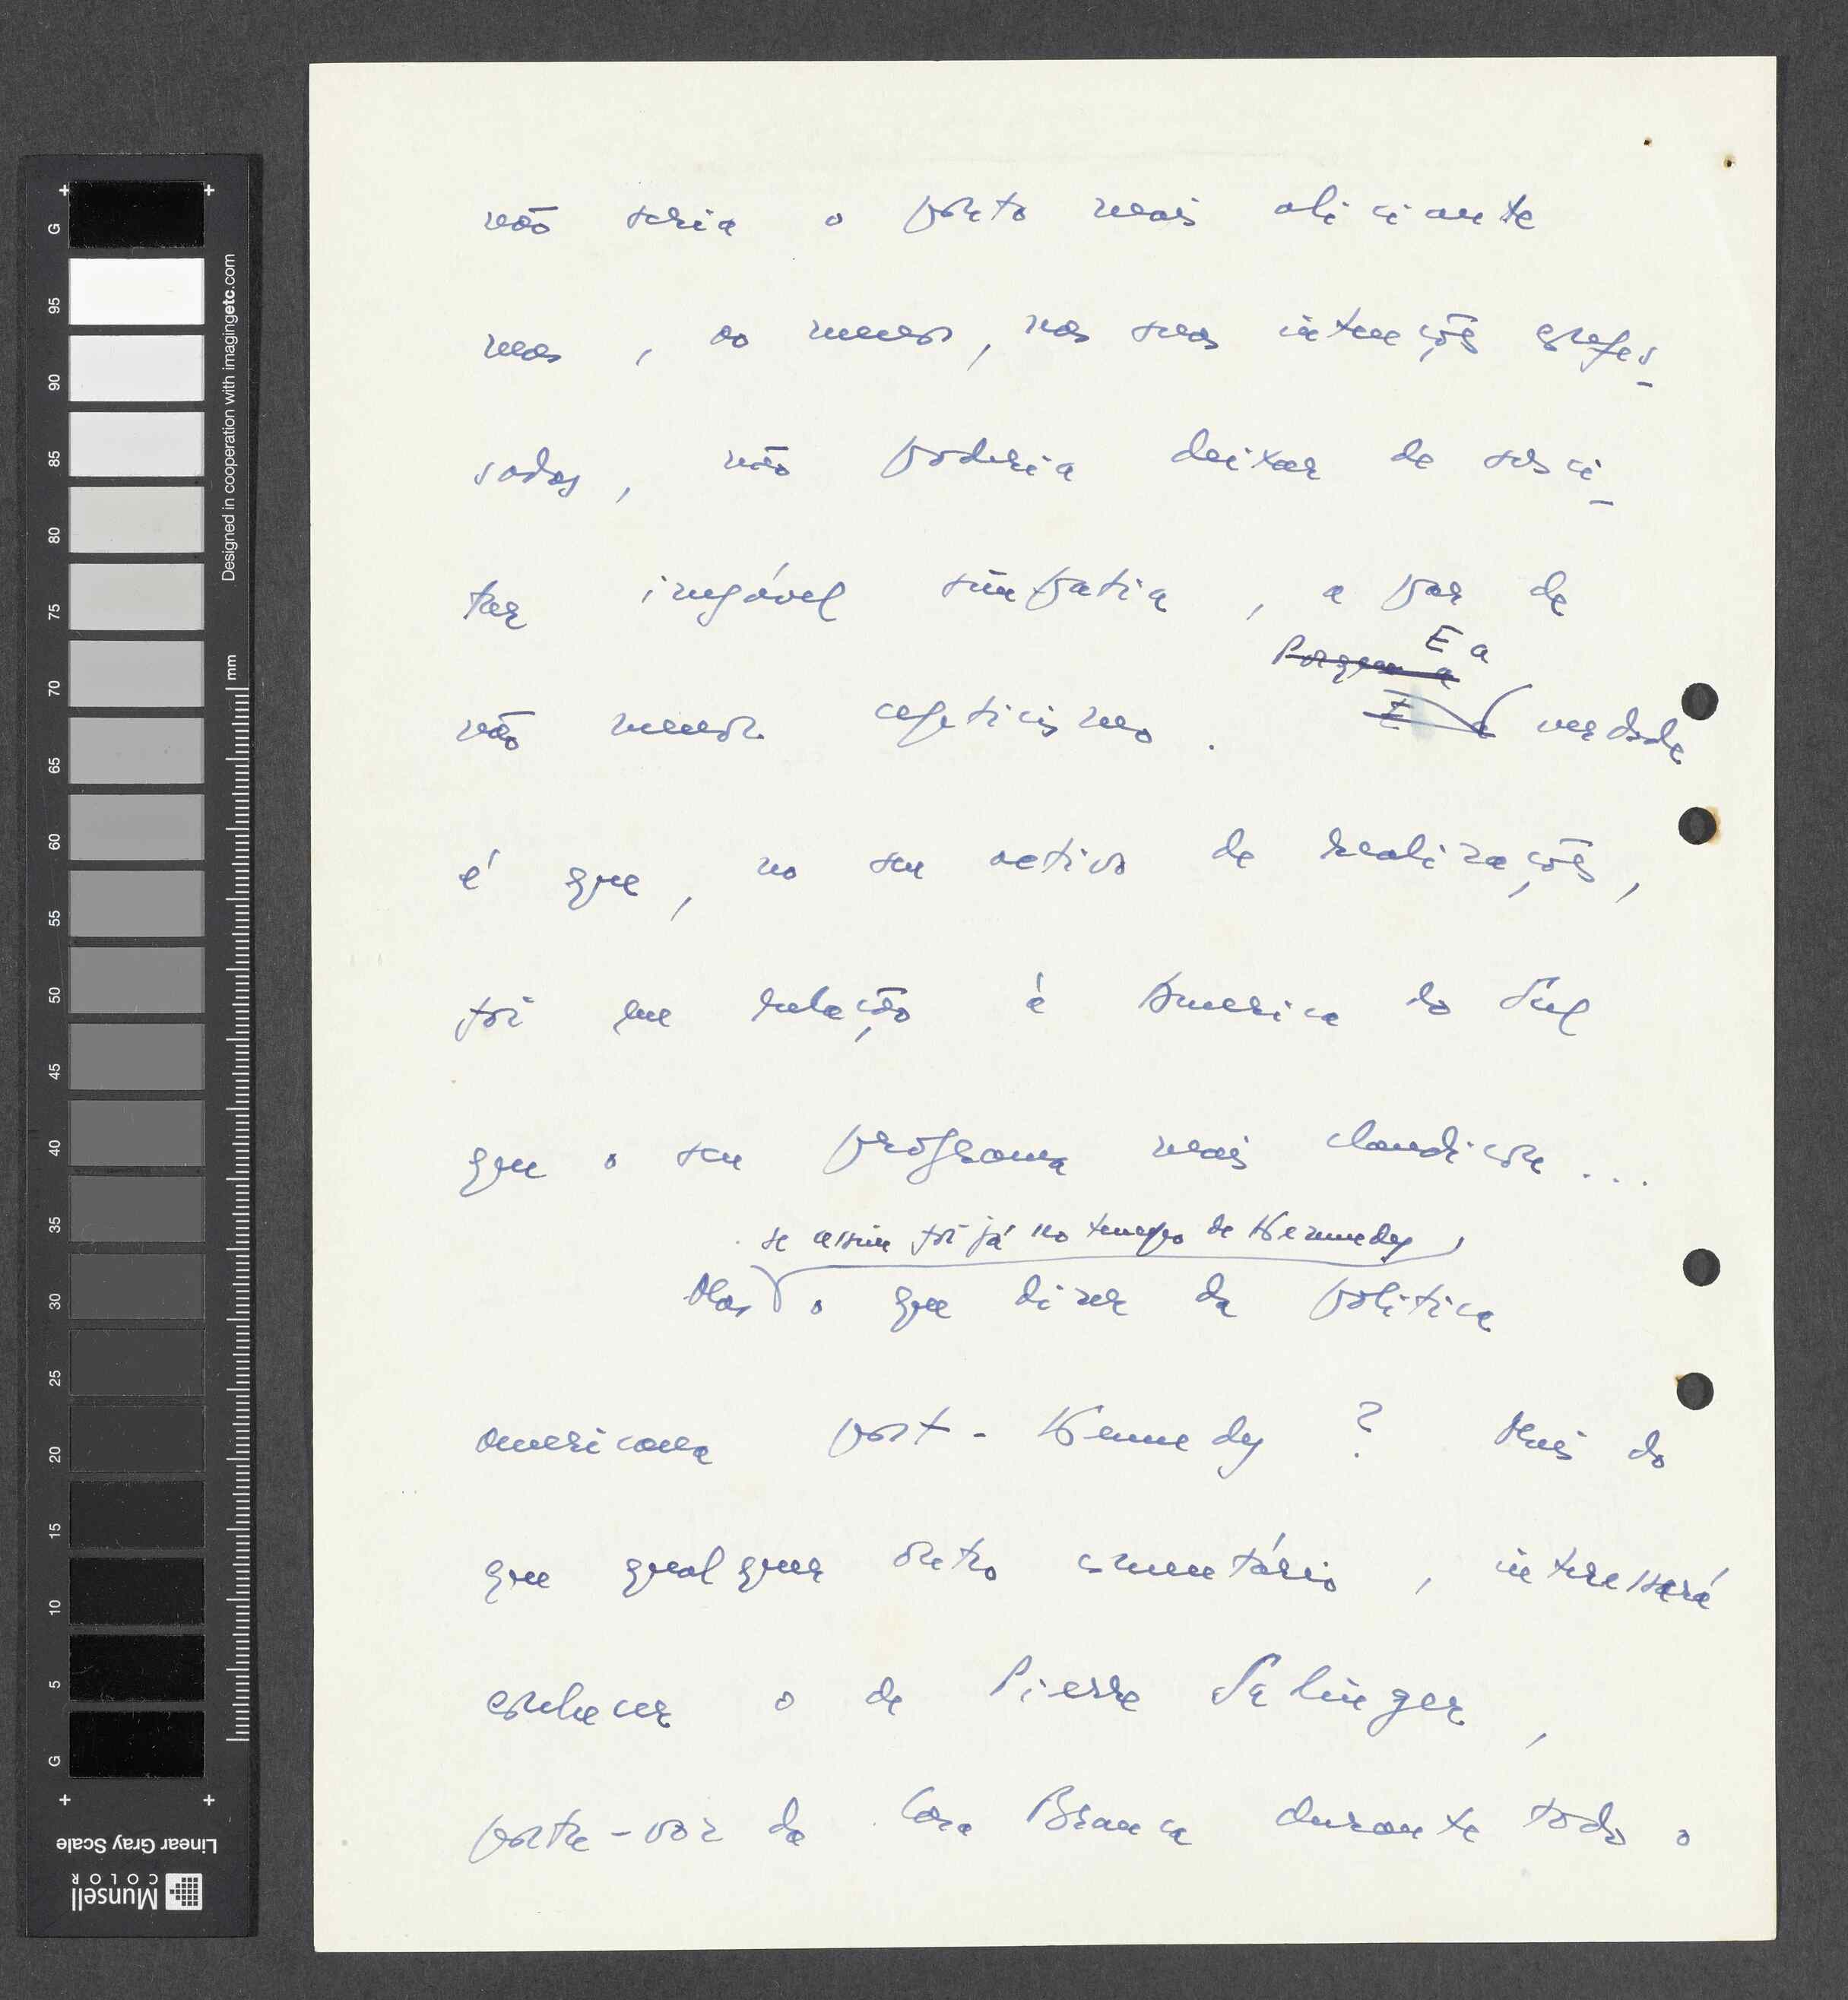 não seria o ponto mais aliciante
mas, ao menos, nas suas intenções confes-
sadas, não poderia deixar de susci-
tar inegável simpatia, a par de
Porque a E a
não menor cepticismo. E a verdade
é que, no seu activo de realizações,
foi em relação à America do Sul
que o seu programa mais claudicou...
se assim foi já no tempo de Kennedy,
Mas o que dizer da politica
americana post-Kennedy? Mais do
que qualquer outro comentário, interessará
conhecer o de Pierre Salinger,
porta-voz da Casa Branca durante todo o
G
95
90
85
80
75
70
65
60
55
50
45
40
35
30
25
20
15
10
5
G
mm
Designed in cooperation with imagingetc.com
Linear Gray Scale
Munsell
COLOR